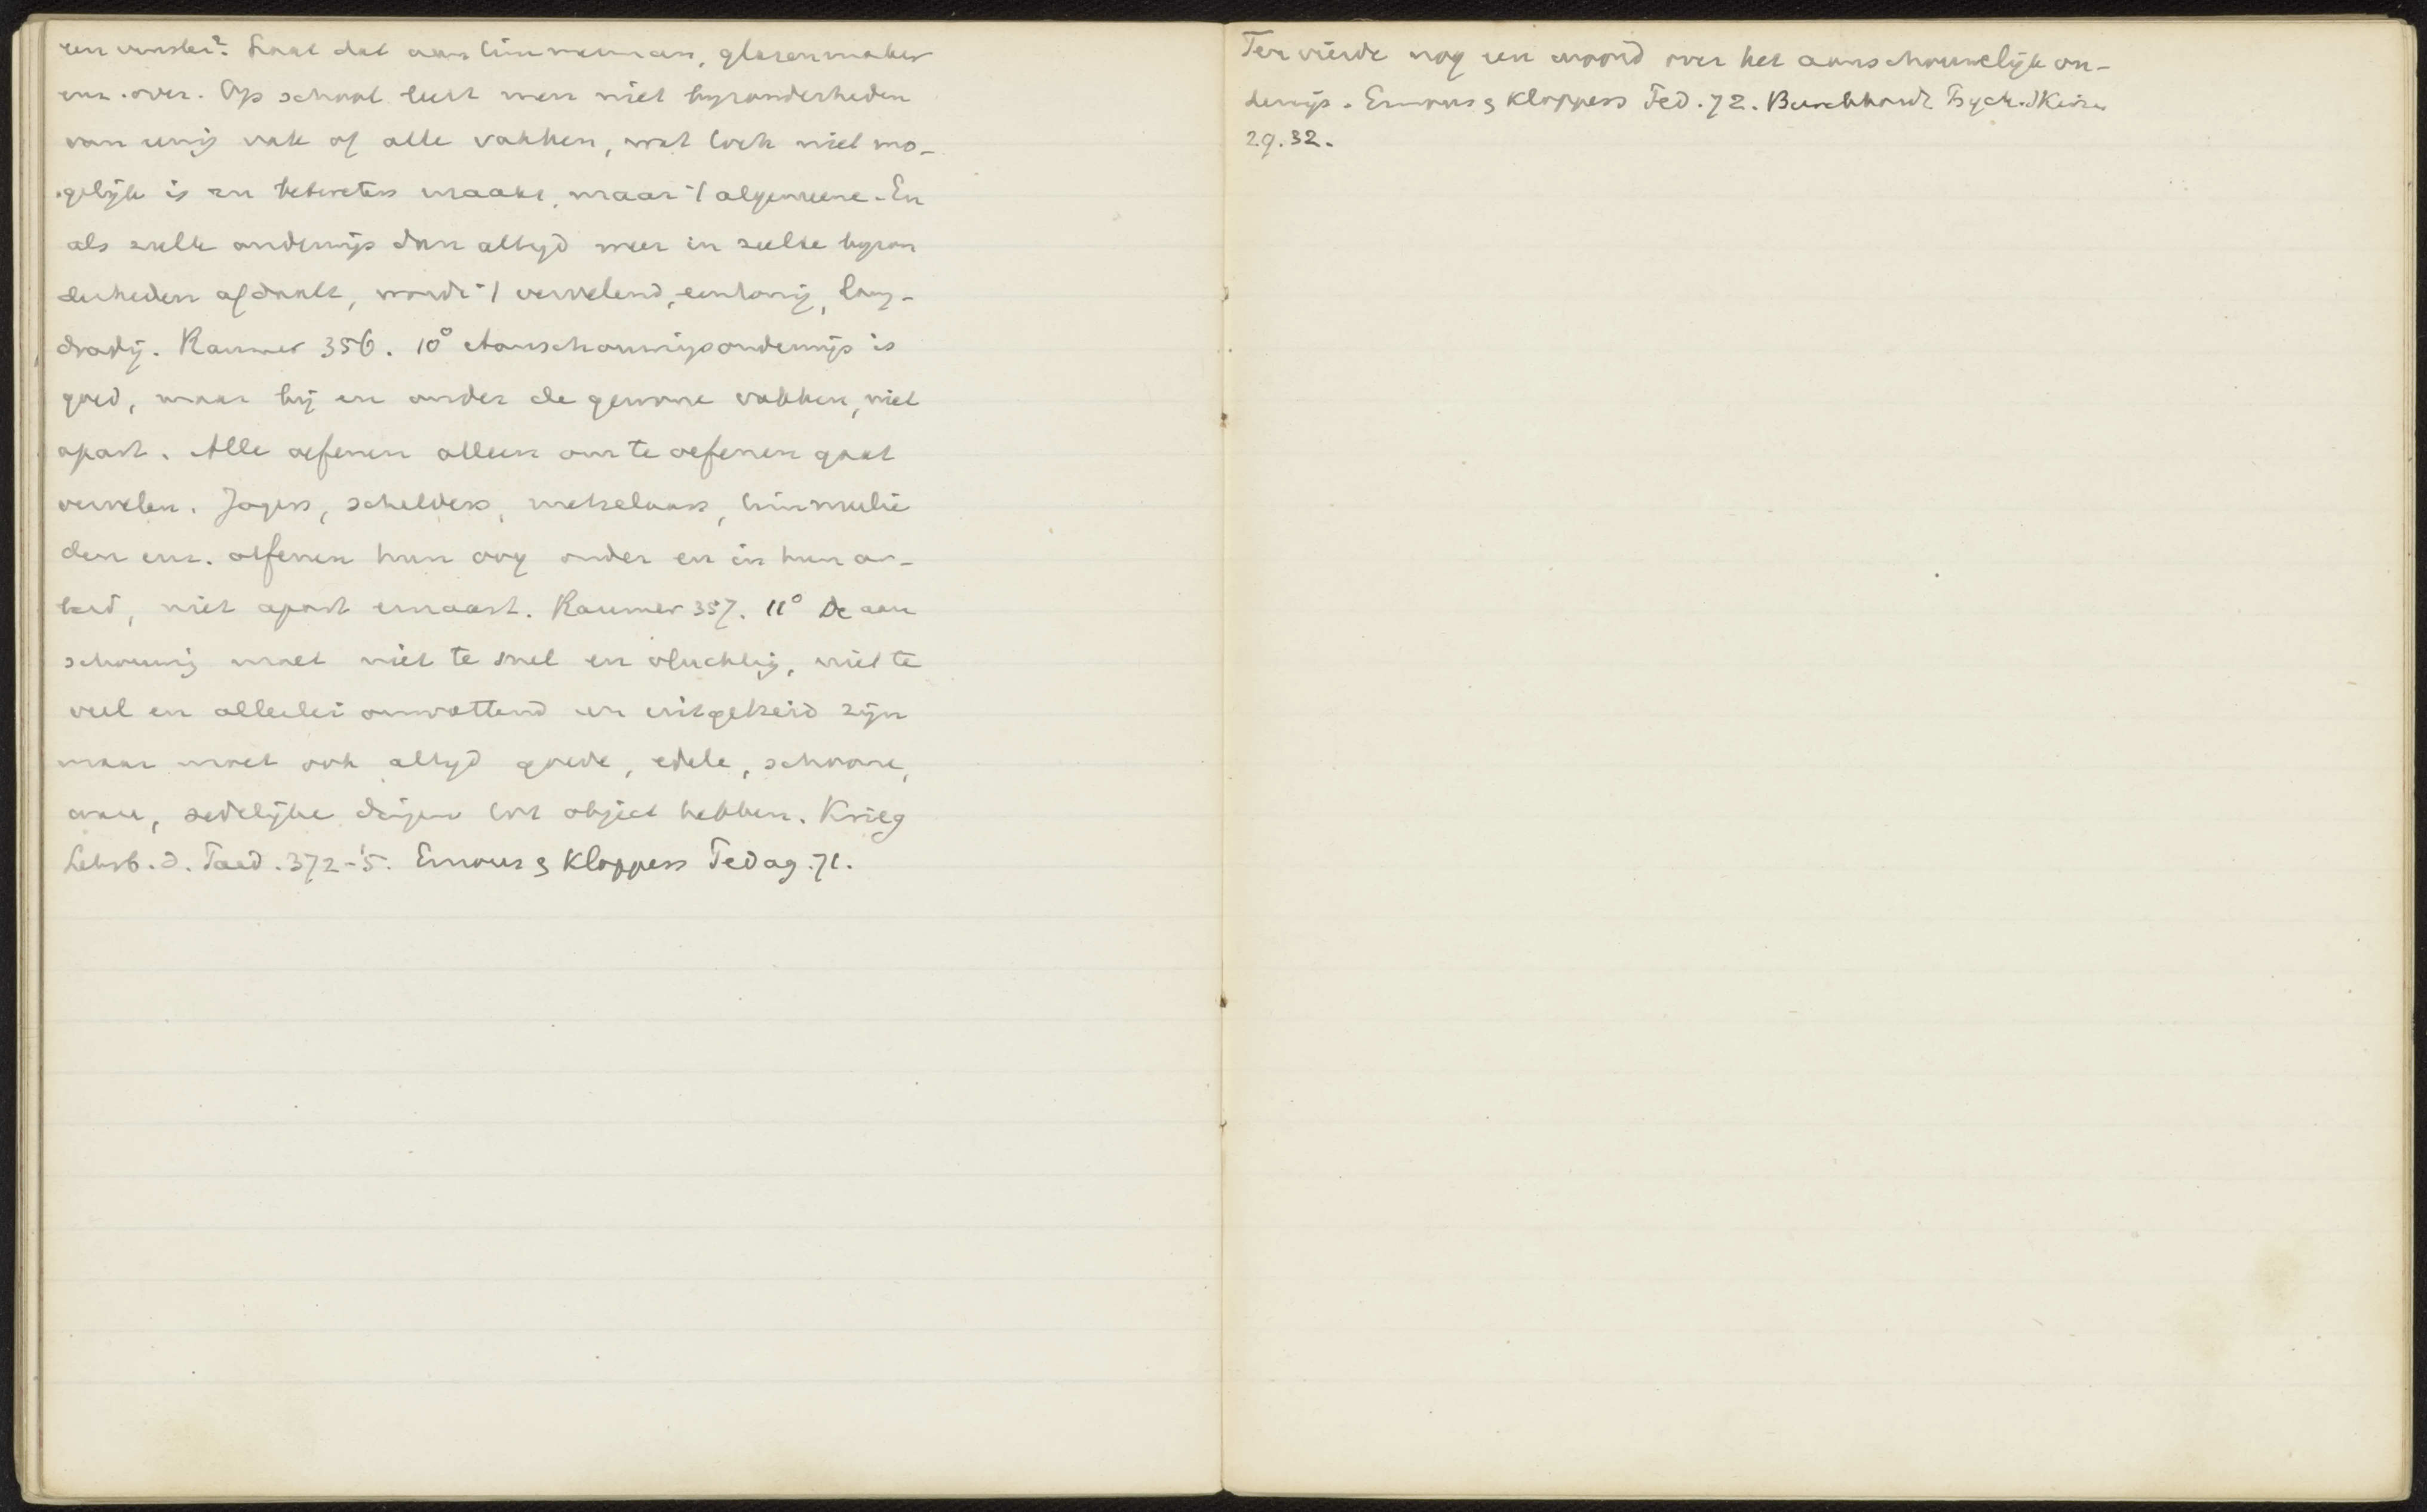 een venster? Laat dat aan timmerman, glazenmaker
enz. over. Op school leert men niet byzonderheden
van eenig vak of alle vakken, wat toch niet mo-
gelijk is en betweters maakt, maar 't algemeene. En
als zulk onderwijs dan altyd weer in zulke byzon
derheden afdaalt, wordt 't vervelend, eentonig, lang-
dradig. Raumer 356. 10° Aanschouwingsonderwijs is
goed, maar bij en onder de gewone vakken, niet
apart. Alle oefenen alleen om te oefenen gaat
vervelen. Jagers, schilders, metselaars, timmerlie
den enz. oefenen hun oog onder en in hun ar-
beid, niet apart ernaast. Raumer 357. 11° De aan
schouwing moet niet te snel en vluchtig, niet te
veel en allerlei omvattend en uitgebreid zijn
maar moet ook altyd goede, edele, schoone,
ware, zedelijke dingen tot object hebben. Krieg
Lehrb. d. Paed. 372-5. Ernous & Kloppers Pedag. 71.
Ten vierde nog een woord over het aanschouwelijk on-
derwijs. Ernous & Kloppers Ped. 72. Burckhardt Psych.
29. 32.